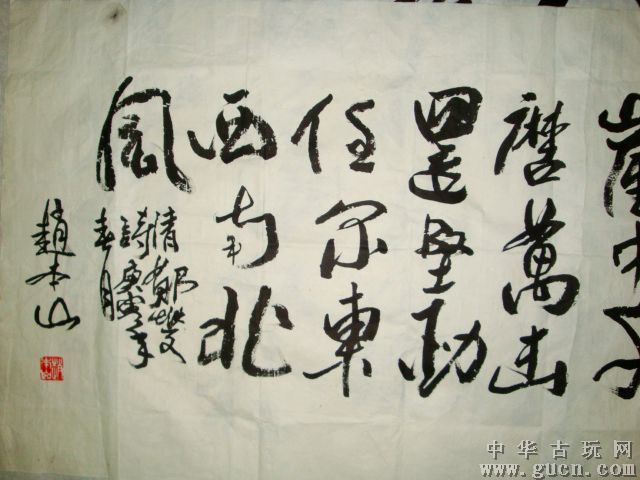 崖中千
磨萬击
還堅勁
任尔東
西南北
風
清鄭燮
詩庚年
春月
趙本山
中华古玩网
www.gucn.com